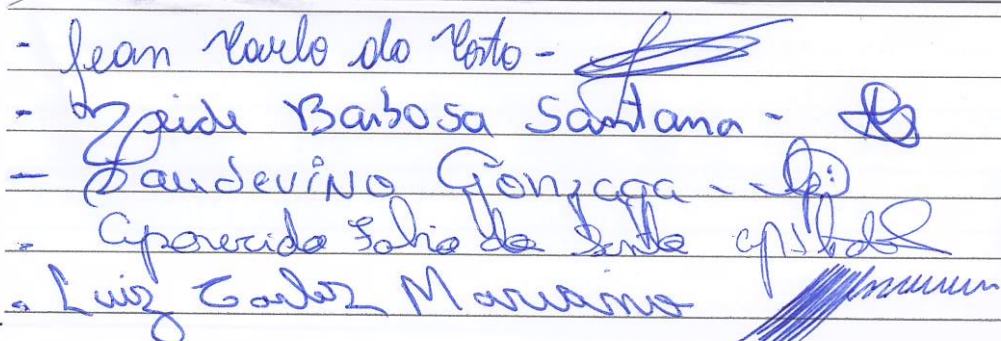 - Jean Carlo do Couto -
- Zeide Barbosa Santana -
- Laudevino Gonzaga -
- Aparecida Fabio da
- Luiz Carlos Mariano